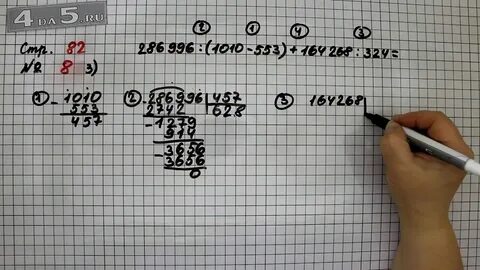 4 DA 5.RU
Стр. 82
№ 8 3)
② ① ④ ③
286996:(1010-553)+164268:324=
① -1010
553
457
② -286996 457
2742 628
-1279
914
-3656
3656
0
③ 164268